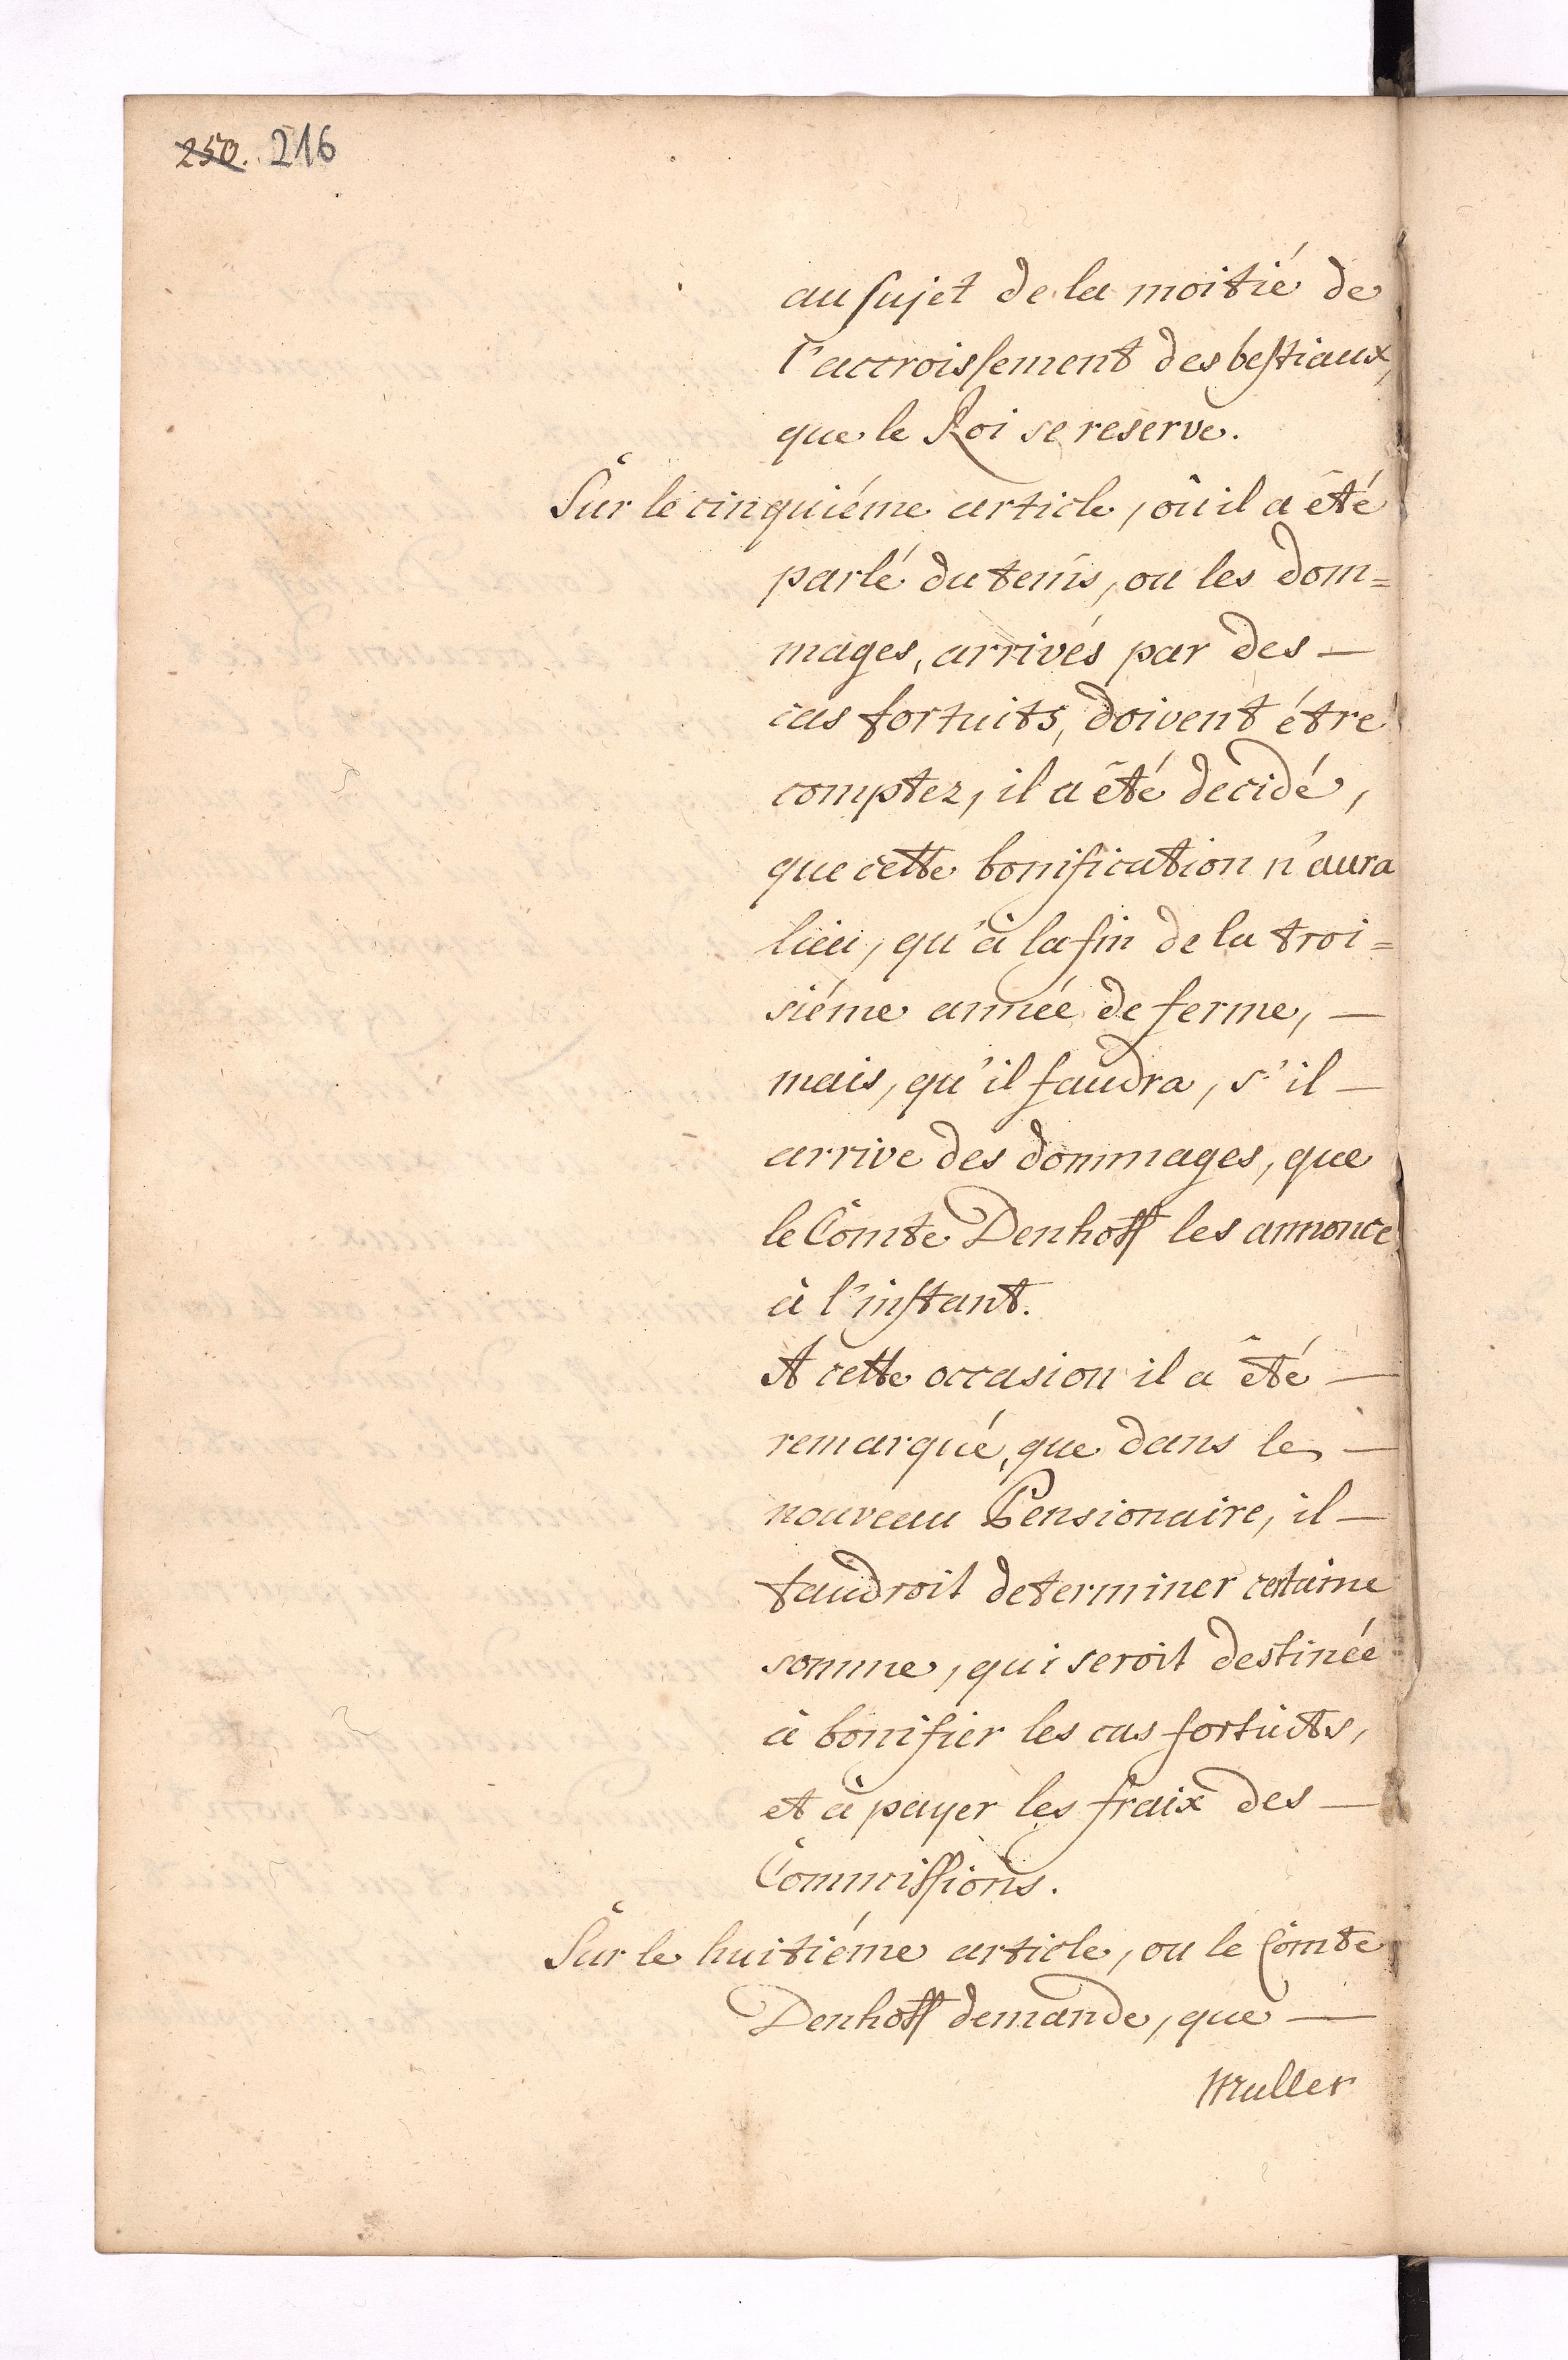 250. 216
au sujet de la moitié de
l'accroissement des bestiaux,
que le Roi se reserve.
Sur le cinquiéme article, où il a été
parlé du tems, ou les dom=
mages, arrivés par des —
cas fortuits, doivent étre
comptez, il a été decidé,
que cette bonification n'aura
lieu, qu'à la fin de la troi=
siéme année de ferme, —
mais, qu'il faudra, s'il —
arrive des dommages, que
le Comte Denhoff les annonce
à l'instant.
A cette occasion il a été —
remarqué, que dans le —
nouveau Pensionaire, il —
faudroit determiner certaine
somme, qui seroit destinée
à bonifier les cas fortuits,
et à payer les fraix des —
Commissions.
Sur le huitiéme article, ou le Comte
Denhoff demande, que —
Muller